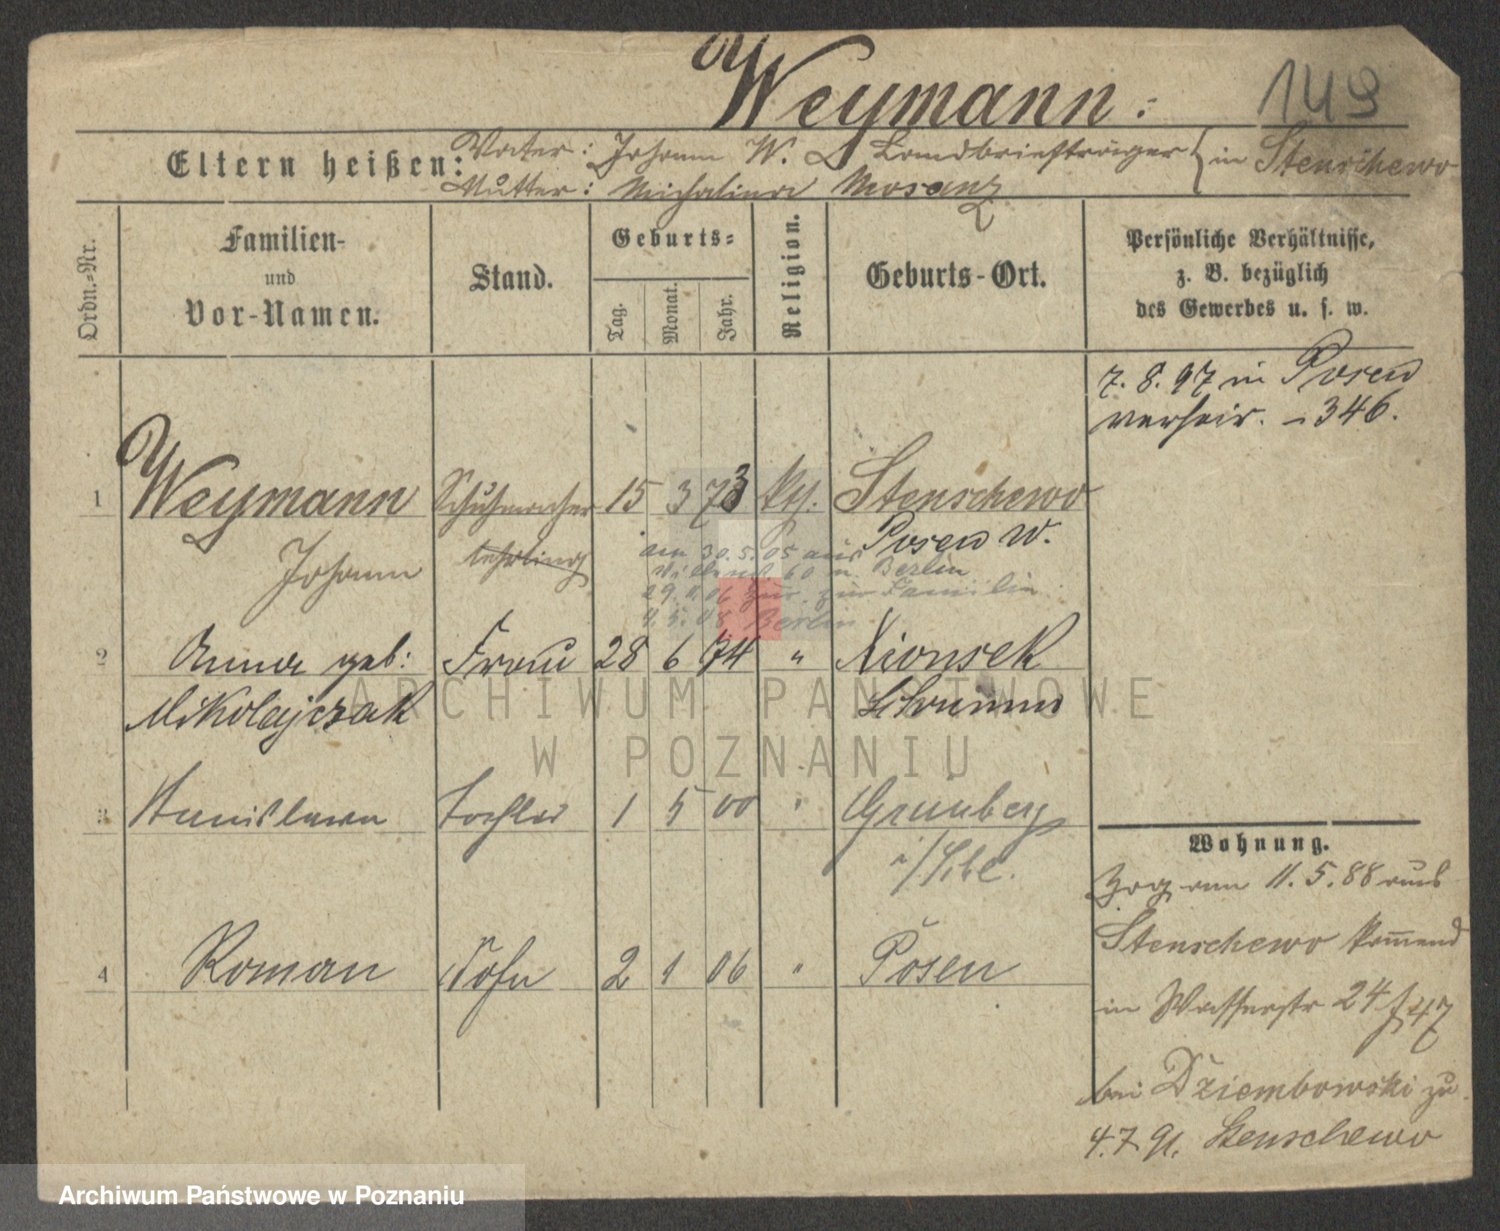 Weymann:
149
Eltern heißen: Vater: Johann W. Landbriefträger in Stenschewo
Mutter: Michalina
Ordn.-Nr.
Familien-
und
Vor-Namen.
Stand.
Geburts-
Tag.
Monat.
Jahr.
Religion.
Geburts-Ort.
Persönliche Verhältnisse,
z. B. bezüglich
des Gewerbes u. s. w.
7. 8. 97 in Posen
verheir. – 346.
1 Weymann Schuhmacher 15 3 73 kth. Stenschewo
Johann lehrling Posen W.
am 30.5.05 aus
60 n. Berlin
29. 11. 06 zur. zur Familie
4. 5. 08 Berlin
2 Anna geb: Frau 28 6 74 " Xionsek
Mikolajczak Schrimm
3 Stanislawa Tochter 1 5 00 " Grünberg
i/Schl.
4 Roman Sohn 2 1 06 " Posen
Wohnung.
Zog am 11. 5. 88 aus
Stenschewo kommend
in Wasserstr 24 f 47
bei Dziembowski zu
4. 7. 91. Stenschewo
ARCHIWUM PAŃSTWOWE
W POZNANIU
Archiwum Państwowe w Poznaniu